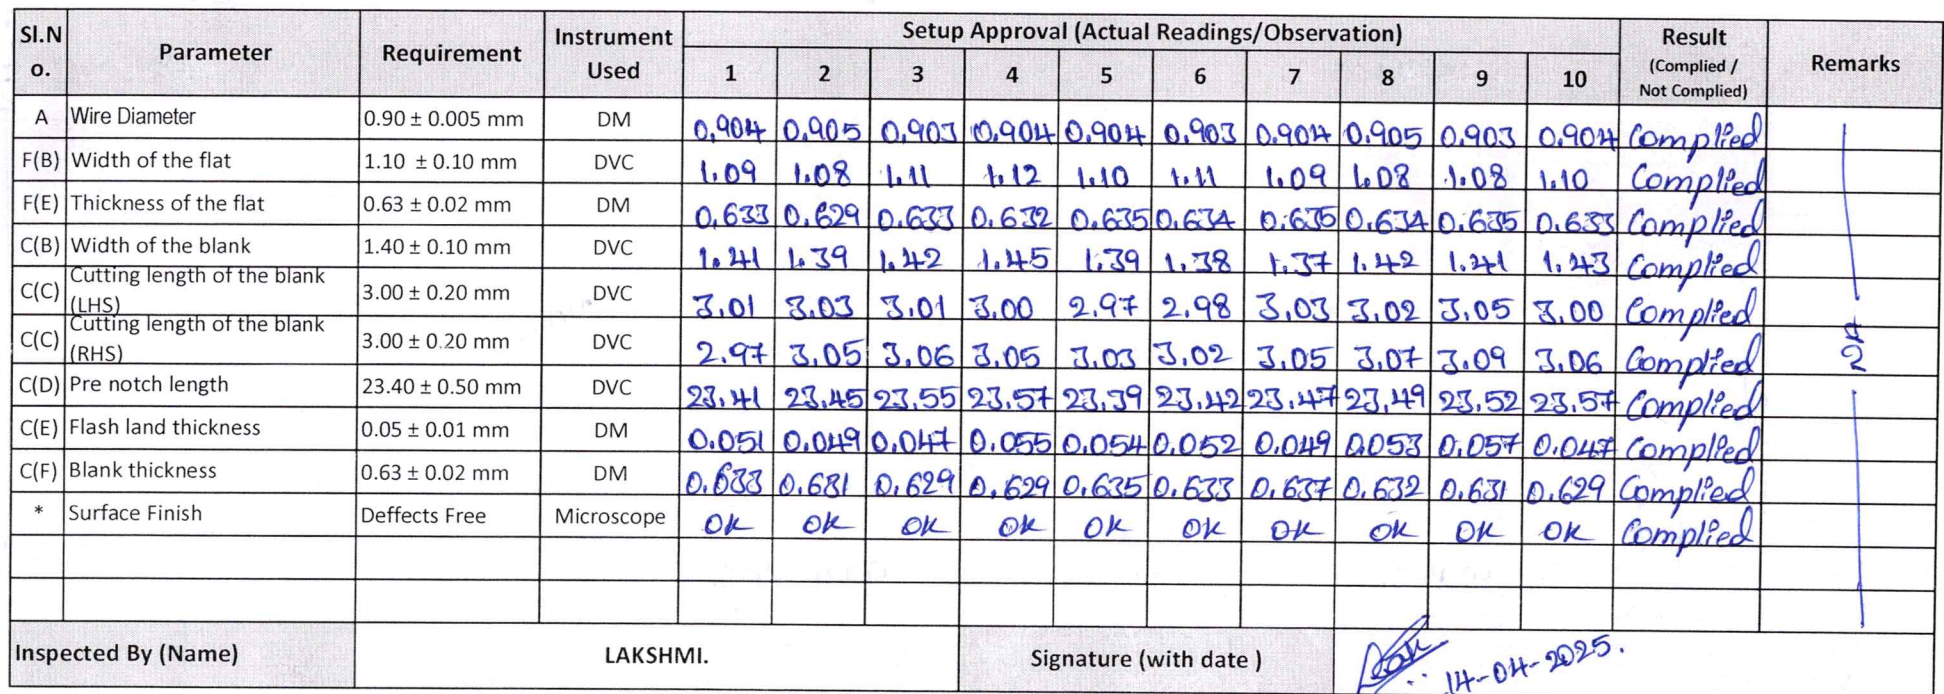 Sl.N o. Parameter Requirement Instrument Used Setup Approval (Actual Readings/Observation) Result (Complied / Not Complied) Remarks
1 2 3 4 5 6 7 8 9 10
A Wire Diameter 0.90 ± 0.005 mm DM 0.904 0.905 0.903 0.904 0.904 0.903 0.904 0.905 0.903 0.904 Complied
F(B) Width of the flat 1.10 ± 0.10 mm DVC 1.09 1.08 1.11 1.12 1.10 1.11 1.09 1.08 1.08 1.10 Complied
F(E) Thickness of the flat 0.63 ± 0.02 mm DM 0.633 0.629 0.633 0.632 0.635 0.634 0.635 0.634 0.635 0.633 Complied
C(B) Width of the blank 1.40 ± 0.10 mm DVC 1.41 1.39 1.42 1.45 1.39 1.38 1.37 1.42 1.41 1.43 Complied
C(C) Cutting length of the blank (LHS) 3.00 ± 0.20 mm DVC 3.01 3.03 3.01 3.00 2.97 2.98 3.03 3.02 3.05 3.00 Complied
C(C) Cutting length of the blank (RHS) 3.00 ± 0.20 mm DVC 2.97 3.05 3.06 3.05 3.03 3.02 3.05 3.07 3.09 3.06 Complied
C(D) Pre notch length 23.40 ± 0.50 mm DVC 23.41 23.45 23.55 23.57 23.39 23.42 23.47 23.49 23.52 23.57 Complied
C(E) Flash land thickness 0.05 ± 0.01 mm DM 0.051 0.049 0.047 0.055 0.054 0.052 0.049 0.053 0.057 0.047 Complied
C(F) Blank thickness 0.63 ± 0.02 mm DM 0.633 0.631 0.629 0.629 0.635 0.633 0.637 0.632 0.631 0.629 Complied
* Surface Finish Deffects Free Microscope OK OK OK OK OK OK OK OK OK OK Complied
Inspected By (Name) LAKSHMI. Signature (with date ) 14-04-2025.